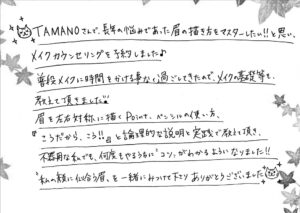 TAMANOさんで、長年の悩みであった眉の描き方をマスターしたい!!と思い、
メイクカウンセリングを予約しました♪
普段メイクに時間をかける事なく過ごしてきたので、メイクの基礎等も、
教えて頂きました
眉を左右対称に描くPoint、ペンシルの使い方、
『こうだから、こう!!』と論理的な説明と実践で教えて頂き、
不器用な私でも、何度もやるうちに"コツ"がわかるようになりました!!
"私の顔に似合う眉"を一緒にみつけて下さりありがとうございました